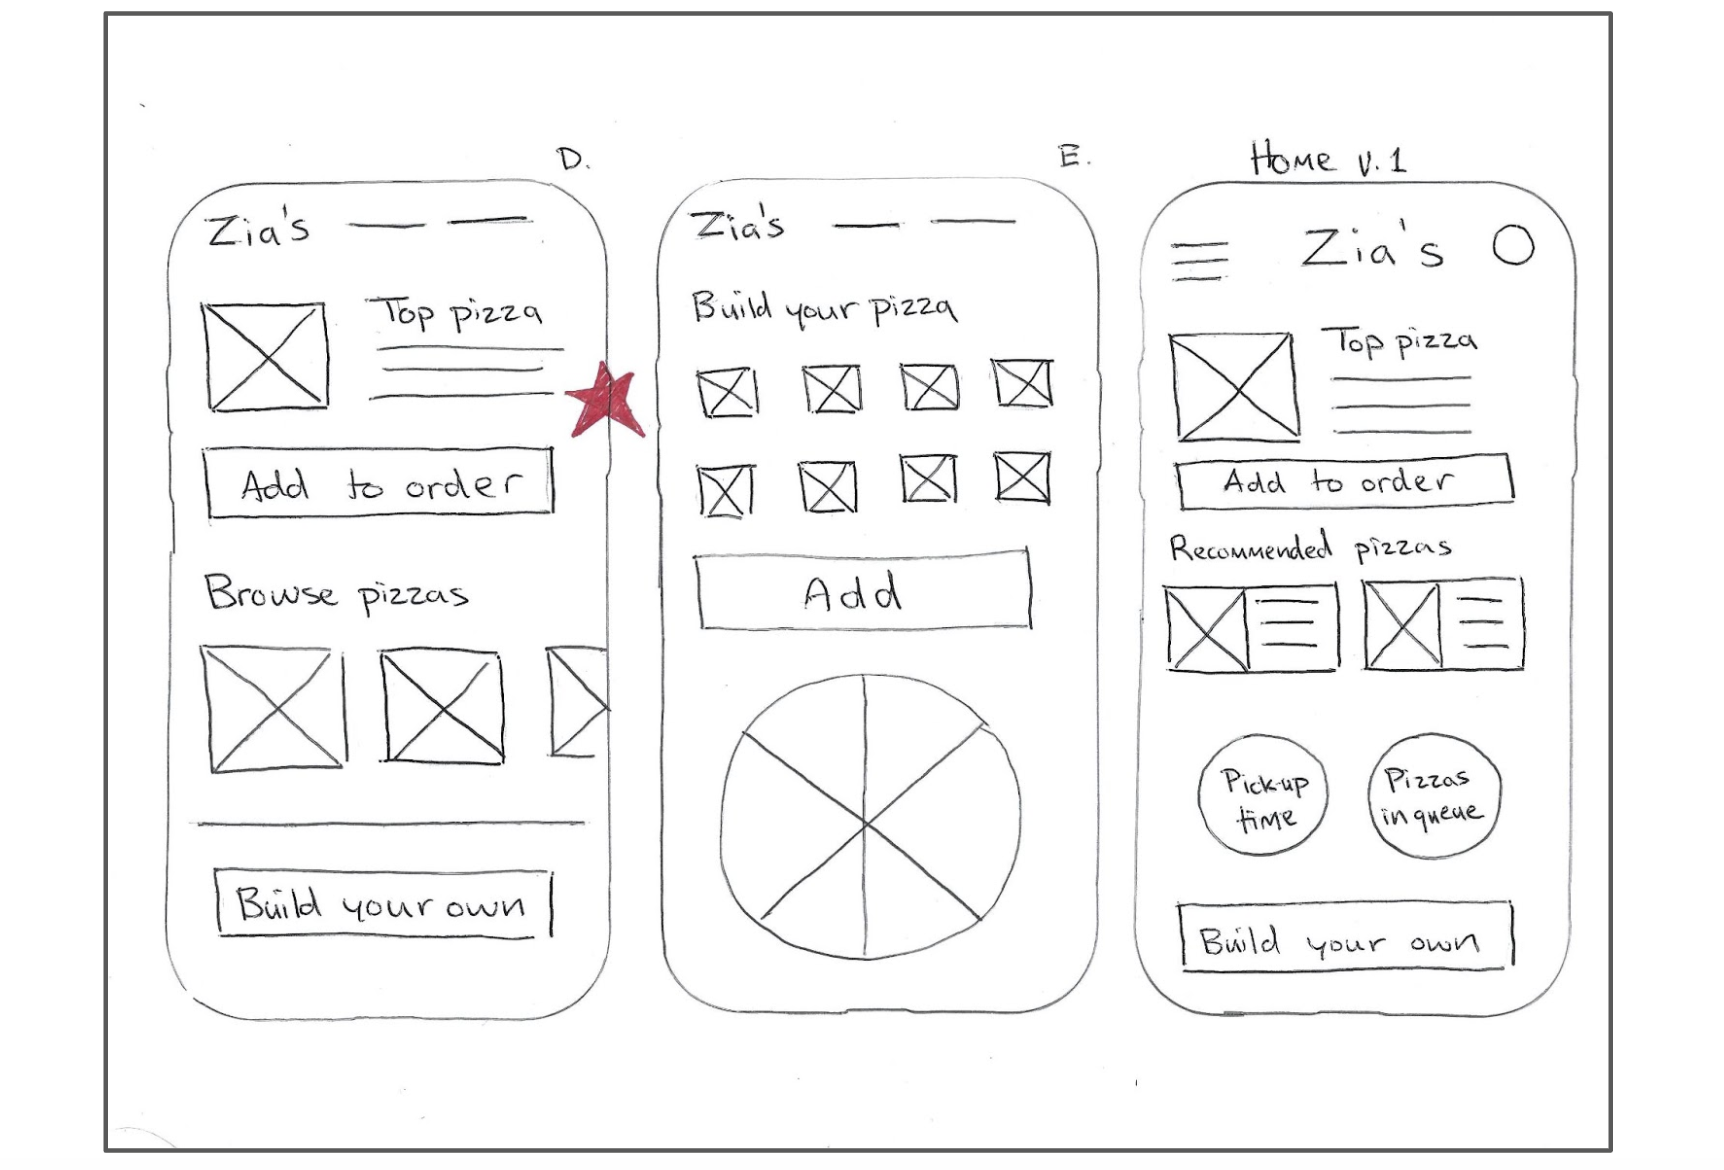 D.
Zia's
Top pizza
Add to order
Browse pizzas
Build your own
E.
Zia's
Build your pizza
Add
Home v.1
Zia's
Top pizza
Add to order
Recommended pizzas
Pick-up
time
Pizzas
in queue
Build your own